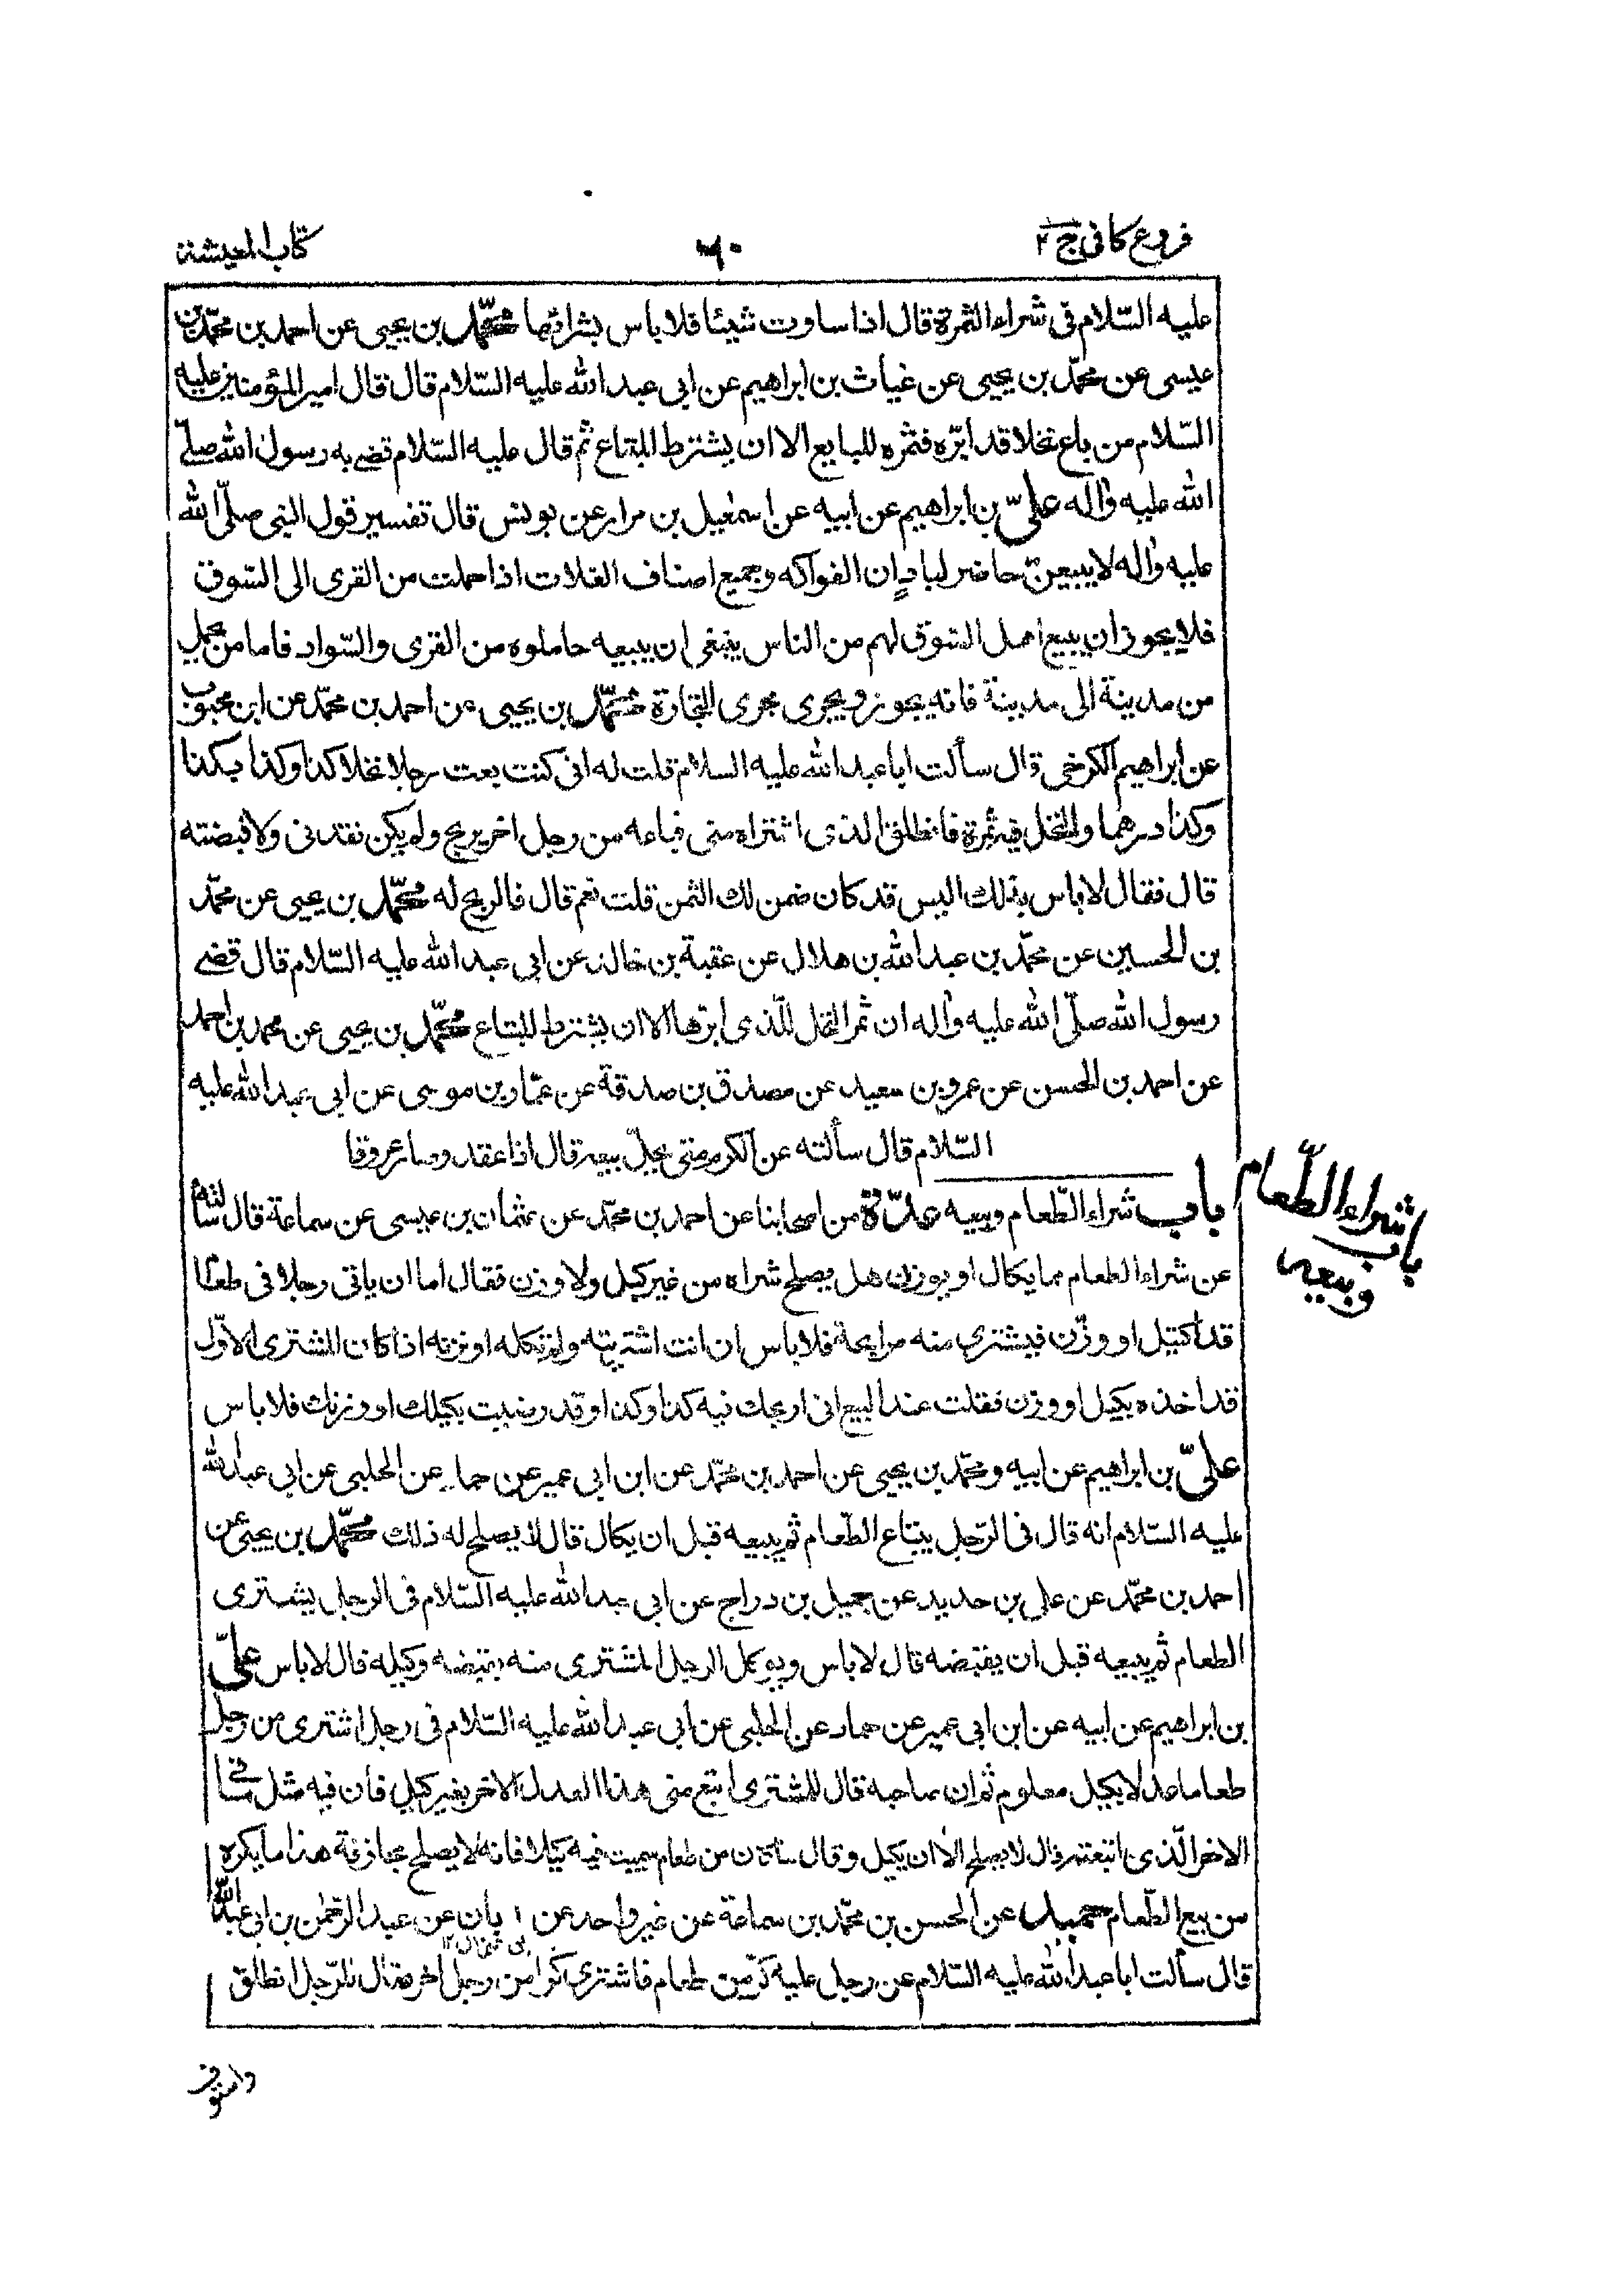 فروع كافى ج ٢
٦٠
كتاب المعيشة
عليه السّلام فى شراء الثمرة قال اذا ساوت شيئا فلا باس بشرائها محمّد بن يحيى عن احمد بن محمّد بن
عيسى عن محمّد بن يحيى عن غياث بن ابراهيم عن ابى عبد الله عليه السّلام قال قال امير المؤمنين عليه
السّلام من باع نخلا قد ابّره فثمره للبايع الا ان يشترط المبتاع ثم قال عليه السّلام قضى به رسول الله صلّى
الله عليه واٰله علىّ بن ابراهيم عن ابيه عن اسمٰعيل بن مرار عن يونس قال تفسير قول النبى صلّى الله
عليه واٰله لا يبيعنّ حاضر لبادٍ ان الفواكه وجميع اصناف الغلات اذا حملت من القرى الى السّوق
فلا يجوز ان يبيع اهل السّوق لهم من الناس ينبغى ان يبيعه حاملوه من القرى والسّواد فاما من يحمل
من مدينة الى مدينة فانه يجوز ويجرى مجرى التجارة محمّد بن يحيى عن احمد بن محمّد عن ابن محبوب
عن ابراهيم الكرخى قال سألت ابا عبد الله عليه السلام قلت له انى كنت بعت رجلا نخلا كذا وكذا بكذا
وكذا درهما والنخل فيه ثمرة فانطلق الذى اشتراه منى فباعه من رجل اخر بربح ولم يكن نقدنى ولا قبضته
قال فقال لا باس بذلك اليس قد كان ضمن لك الثمن قلت نعم قال فالربح له محمّد بن يحيى عن محمّد
بن الحسين عن محمّد بن عبد الله بن هلال عن عقبة بن خالد عن ابى عبد الله عليه السّلام قال قضى
رسول الله صلّى الله عليه واٰله ان ثمر النخل للّذى ابّرها الا ان يشترط المبتاع محمّد بن يحيى عن محمد بن احمد
عن احمد بن الحسن عن عمرو بن سعيد عن مصدق بن صدقة عن عمّار بن موسى عن ابى عبد الله عليه
السّلام قال سألته عن الكرم متى يحلّ بيعه قال اذا عقد وصار عروقا
باب شراء الطّعام وبيعه
باب شراء الطّعام وبيعه عدّة من اصحابنا عن احمد بن محمّد عن عثمان بن عيسى عن سماعة قال سألته
عن شراء الطعام مما يكال او يوزن هل يصلح شراه من غير كيل ولا وزن فقال اما ان ياتى رجلا فى طعام
قد اكتيل او وزن فيشترى منه مرابحة فلا باس ان انت اشتريته ولم تكله او تزنه اذا كان المشترى الاوّل
قد اخذه بكيل او وزن فقلت عند البيع انى اربحك فيه كذا وكذا وقد رضيت بكيلك او وزنك فلا باس
علىّ بن ابراهيم عن ابيه ومحمّد بن يحيى عن احمد بن محمّد عن ابن ابى عمير عن حماد عن الحلبى عن ابى عبد الله
عليه السّلام انه قال فى الرّجل يبتاع الطّعام ثم يبيعه قبل ان يكال قال لا يصلح له ذلك محمّد بن يحيى عن
احمد بن محمّد عن على بن حديد عن جميل بن دراج عن ابى عبد الله عليه السّلام فى الرجل يشترى
الطعام ثم يبيعه قبل ان يقبضه قال لا باس ويوكل الرجل المشترى منه بقبضه وكيله قال لا باس علىّ
بن ابراهيم عن ابيه عن ابن ابى عمير عن حماد عن الحلبى عن ابى عبد الله عليه السّلام فى رجل اشترى من رجل
طعاما عدلا بكيل معلوم ثم ان صاحبه قال للمشترى ابتع منى هذا العدل الاخر بغير كيل فان فيه مثل ما فى
الاخر الّذى ابتعته قال لا يصلح الا ان يكيل وقال ما كان من طعام سميت فيه كيلا فانه لا يصلح مجازفة هذا ما يكره
من بيع الطّعام حميد عن الحسن بن محمّد بن سماعة عن غير واحد عن ابان عن عبد الرّحمٰن بن ابى عبد الله
قال سألت ابا عبد الله عليه السّلام عن رجل عليه كرّ من طعام فاشترى كرّا من رجل اخر فقال للرّجل انطلق
فاستوف